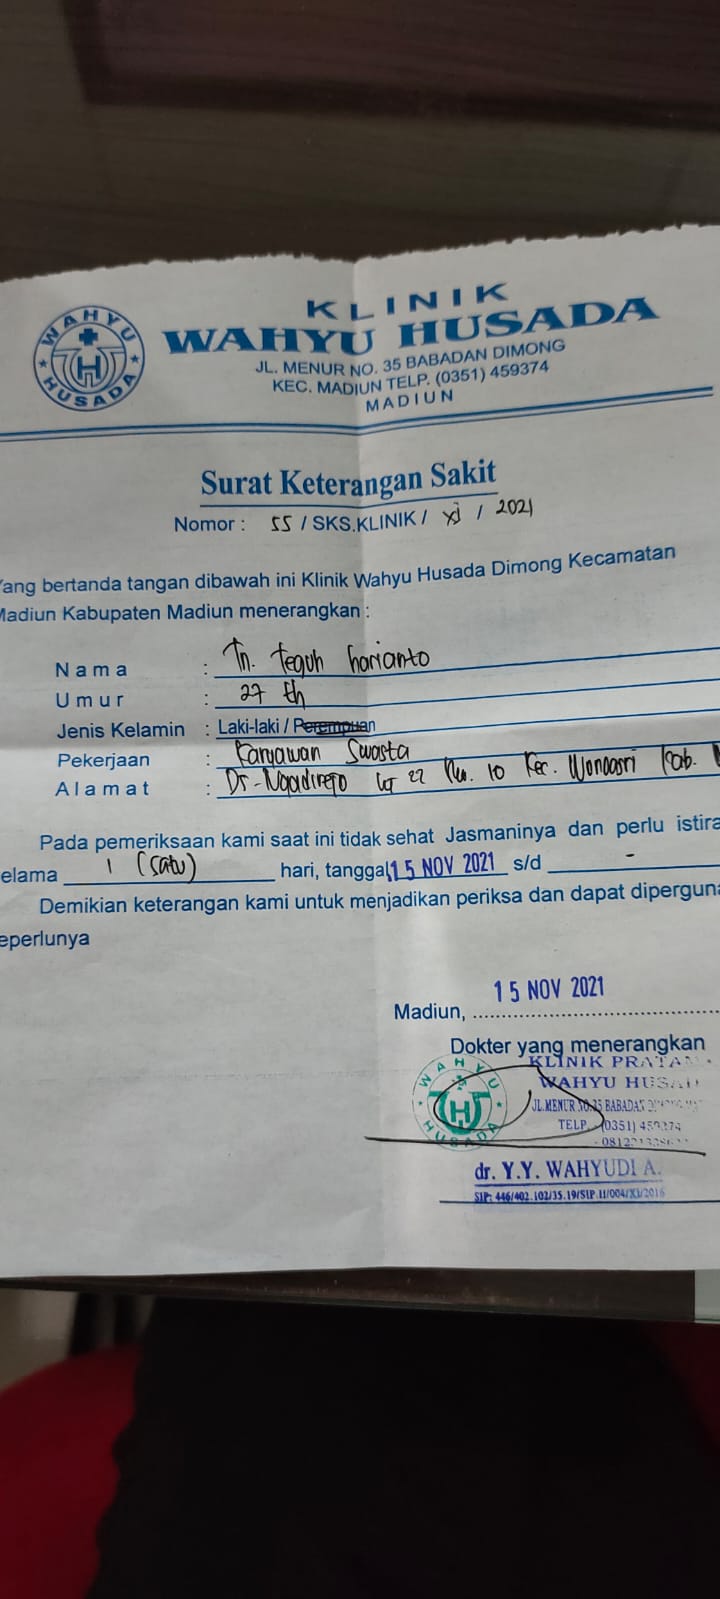 WAHYU
HUSADA
KLINIK
WAHYU HUSADA
JL. MENUR NO. 35 BABADAN DIMONG
KEC. MADIUN TELP. (0351) 459374
MADIUN
Surat Keterangan Sakit
Nomor : 55 / SKS.KLINIK / XI / 2021
Yang bertanda tangan dibawah ini Klinik Wahyu Husada Dimong Kecamatan
Madiun Kabupaten Madiun menerangkan :
Nama : Tn. Teguh harianto
Umur : 27 th
Jenis Kelamin : Laki-laki / Perempuan
Pekerjaan : Karyawan Swasta
Alamat : Ds-Ngadirejo 22 10 Kec. Wonoasri Kab.
Pada pemeriksaan kami saat ini tidak sehat Jasmaninya dan perlu istira
elama 1 (satu) hari, tanggal 15 NOV 2021 s/d -
Demikian keterangan kami untuk menjadikan periksa dan dapat dipergun
eperlunya
15 NOV 2021
Madiun, ........................
Dokter yang menerangkan
WAHYU
HUSADA
KLINIK PRATAMA
WAHYU HUSAD
JL.MENUR NO.35 BABADAN
TELP. (0351) 459374
dr. Y.Y. WAHYUDI A.
SIP: 446/402.102/35.19/SIP.II/004/XI/2016